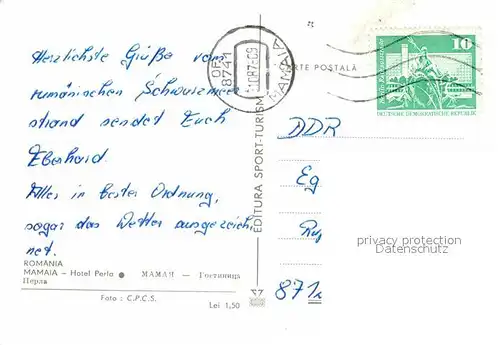 Herzlichste Grüße vom
rumänischen Schwarzmeer
strand sendet Euch
Eberhard.
Alles in bester Ordnung,
sogar das Wetter ausgezeich
net.
ROMÂNIA
MAMAIA – Hotel Perla ● МАМАЯ — Гостиница
Перла
Foto : C.P.C.S.
Lei 1,50
EDITURA SPORT-TURISM
MAMAIA
CARTE POSTALĂ
10
DEUTSCHE DEMOKRATISCHE REPUBLIK
DDR
Eg
871
privacy protection
Datenschutz